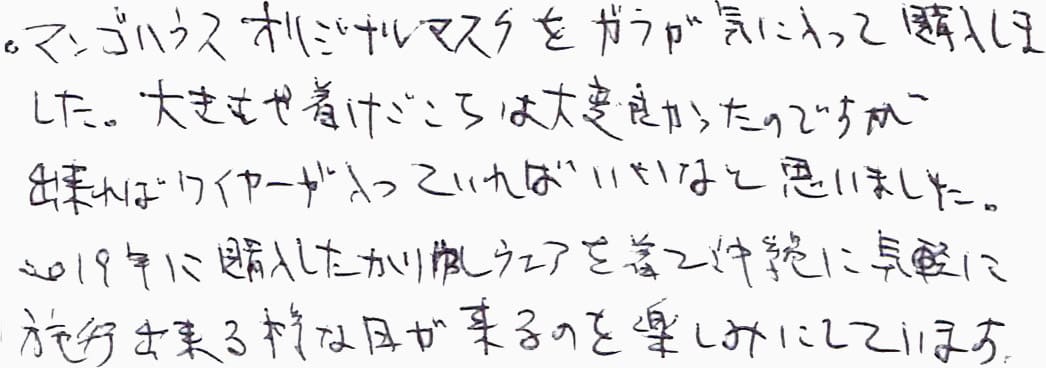 ・マンゴハウスオリジナルマスクをガラが気に入って購入しま
した。大きさや着けごこちは大変良かったのですが
出来ればワイヤーが入っていればいいなと思いました。
2019年に購入したかりゆしウェアを着て沖縄に気軽に
旅行出来る様な日が来るのを楽しみにしています。